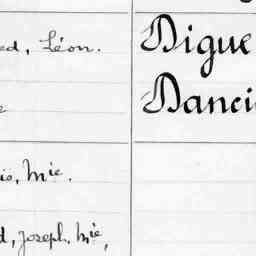 ed, Léon.
Digue
e
Danci
is, Mie.
d, Joseph, Mie,